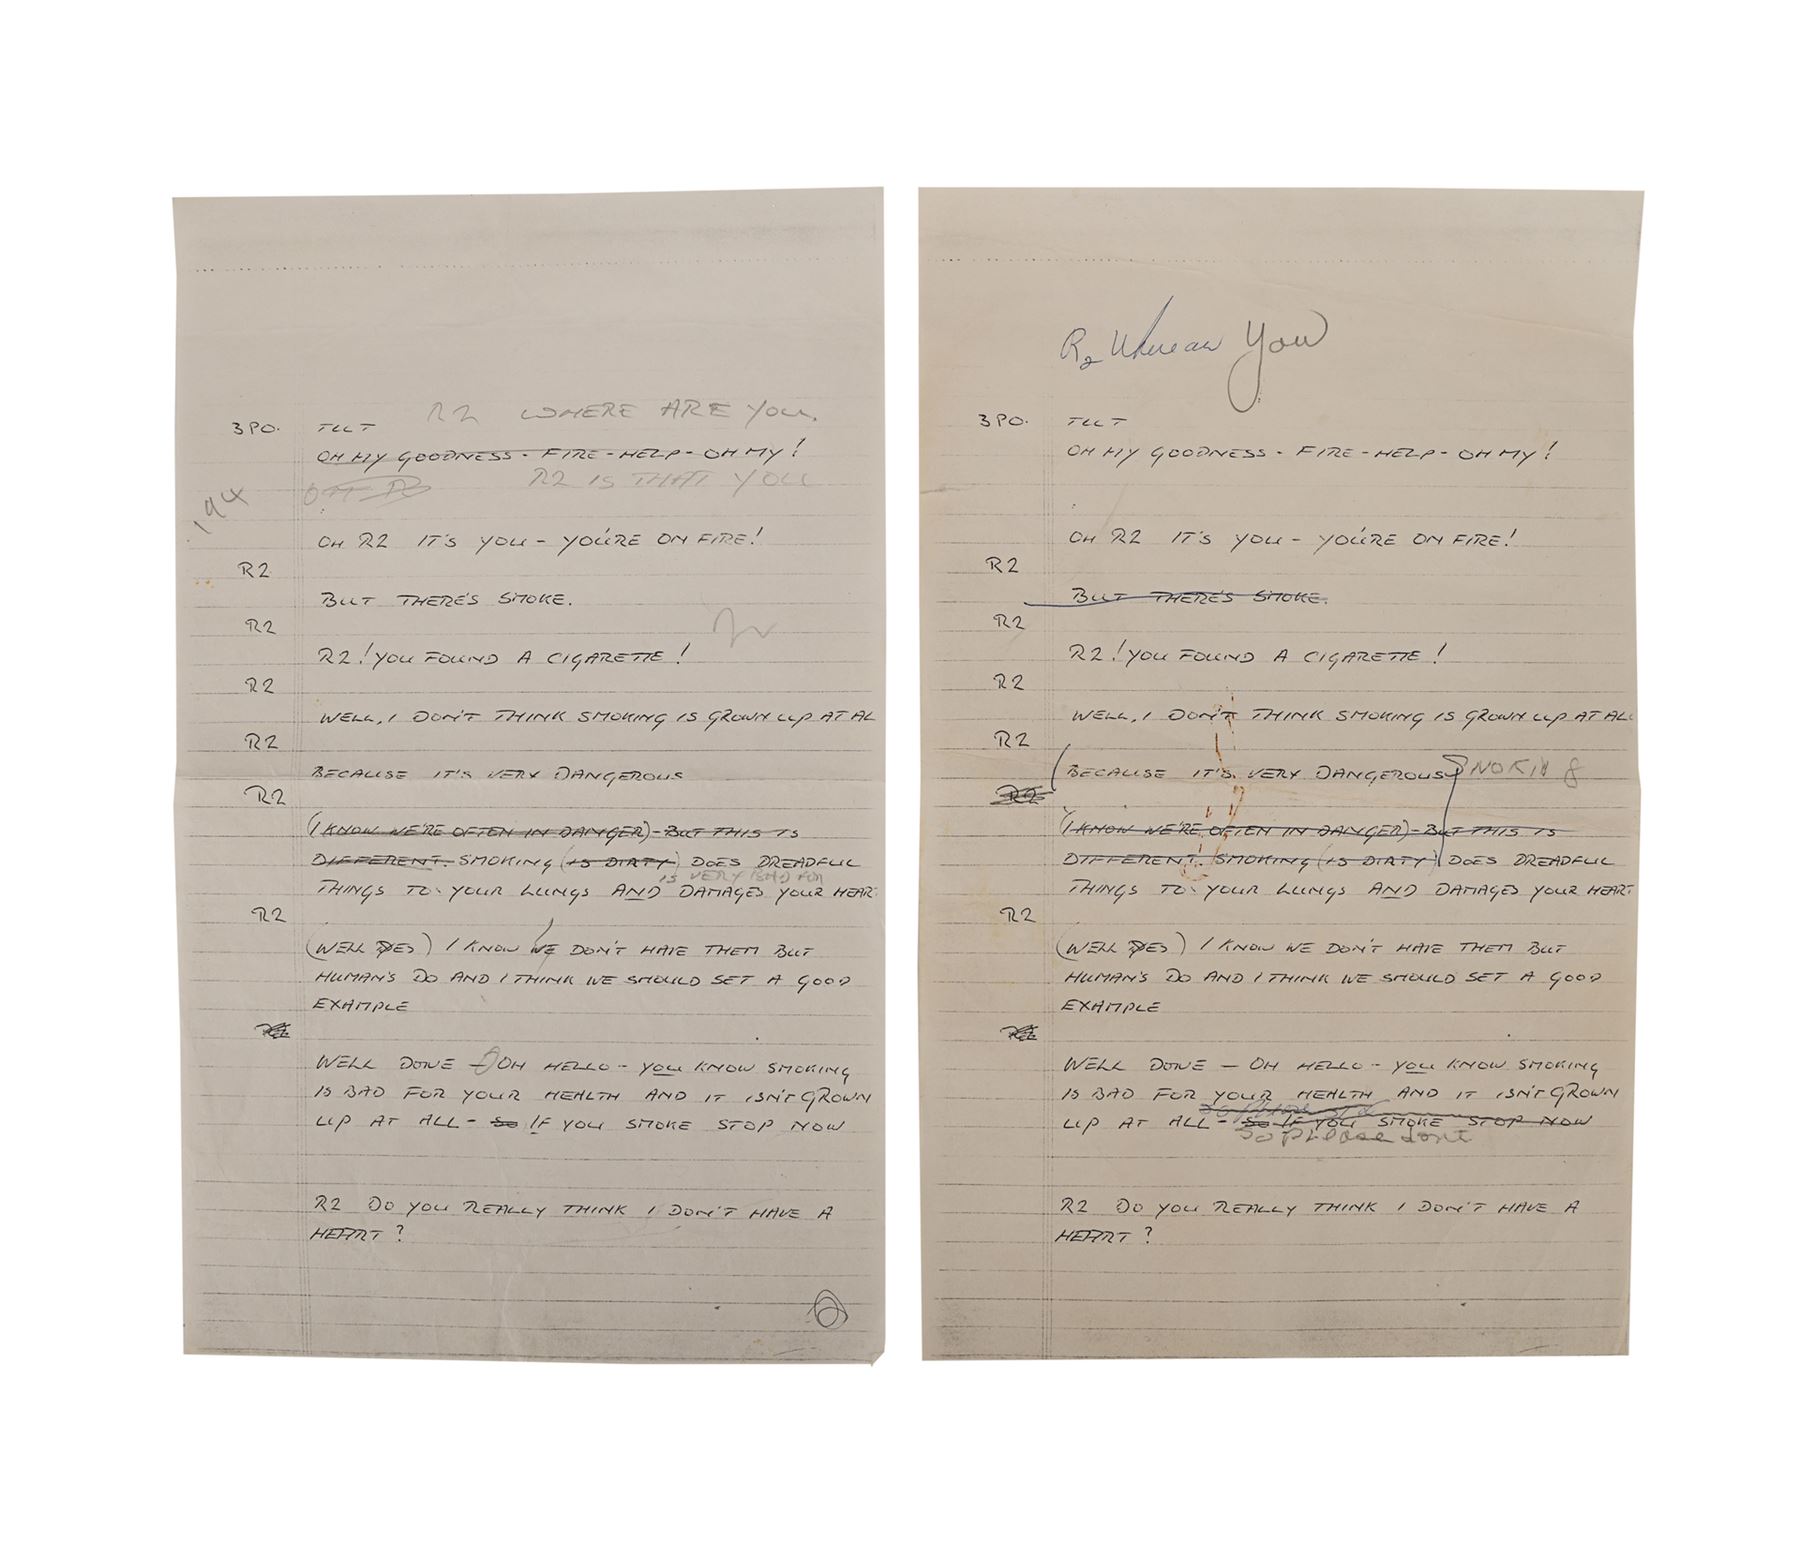 R2 WHERE ARE YOU.
3PO. TILT
OH MY GOODNESS - FIRE - HELP - OH MY!
R2 IS THAT YOU
194
OH R2 IT'S YOU - YOU'RE ON FIRE!
R2
BUT THERE'S SMOKE.
R2
R2! YOU FOUND A CIGARETTE!
R2
WELL, I DON'T THINK SMOKING IS GROWN UP AT AL
R2
BECAUSE IT'S VERY DANGEROUS
R2
(I KNOW WE'RE OFTEN IN DANGER) - BUT THIS IS
DIFFERENT. SMOKING (IS DIRTY) DOES DREADFUL
IS VERY BAD FOR
THINGS TO YOUR LUNGS AND DAMAGES YOUR HEAR
R2
(WELL YES) I KNOW WE DON'T HAVE THEM BUT
HUMAN'S DO AND I THINK WE SHOULD SET A GOOD
EXAMPLE
WELL DONE - OH HELLO - YOU KNOW SMOKING
IS BAD FOR YOUR HEALTH AND IT ISN'T GROWN
UP AT ALL - So IF YOU SMOKE STOP NOW
R2 DO YOU REALLY THINK I DON'T HAVE A
HEART?
R2 Where are You
3PO. TILT
OH MY GOODNESS - FIRE - HELP - OH MY!
OH R2 IT'S YOU - YOU'RE ON FIRE!
R2
BUT THERE'S SMOKE.
R2
R2! YOU FOUND A CIGARETTE!
R2
WELL, I DON'T THINK SMOKING IS GROWN UP AT AL
R2
(BECAUSE IT'S VERY DANGEROUS SMOKING
R2
(I KNOW WE'RE OFTEN IN DANGER) - BUT THIS IS
DIFFERENT. SMOKING (IS DIRTY) DOES DREADFUL
THINGS TO YOUR LUNGS AND DAMAGES YOUR HEART
R2
(WELL YES) I KNOW WE DON'T HAVE THEM BUT
HUMAN'S DO AND I THINK WE SHOULD SET A GOOD
EXAMPLE
WELL DONE - OH HELLO - YOU KNOW SMOKING
IS BAD FOR YOUR HEALTH AND IT ISN'T GROWN
UP AT ALL - So IF YOU SMOKE STOP NOW
So Please dont
R2 DO YOU REALLY THINK I DON'T HAVE A
HEART?